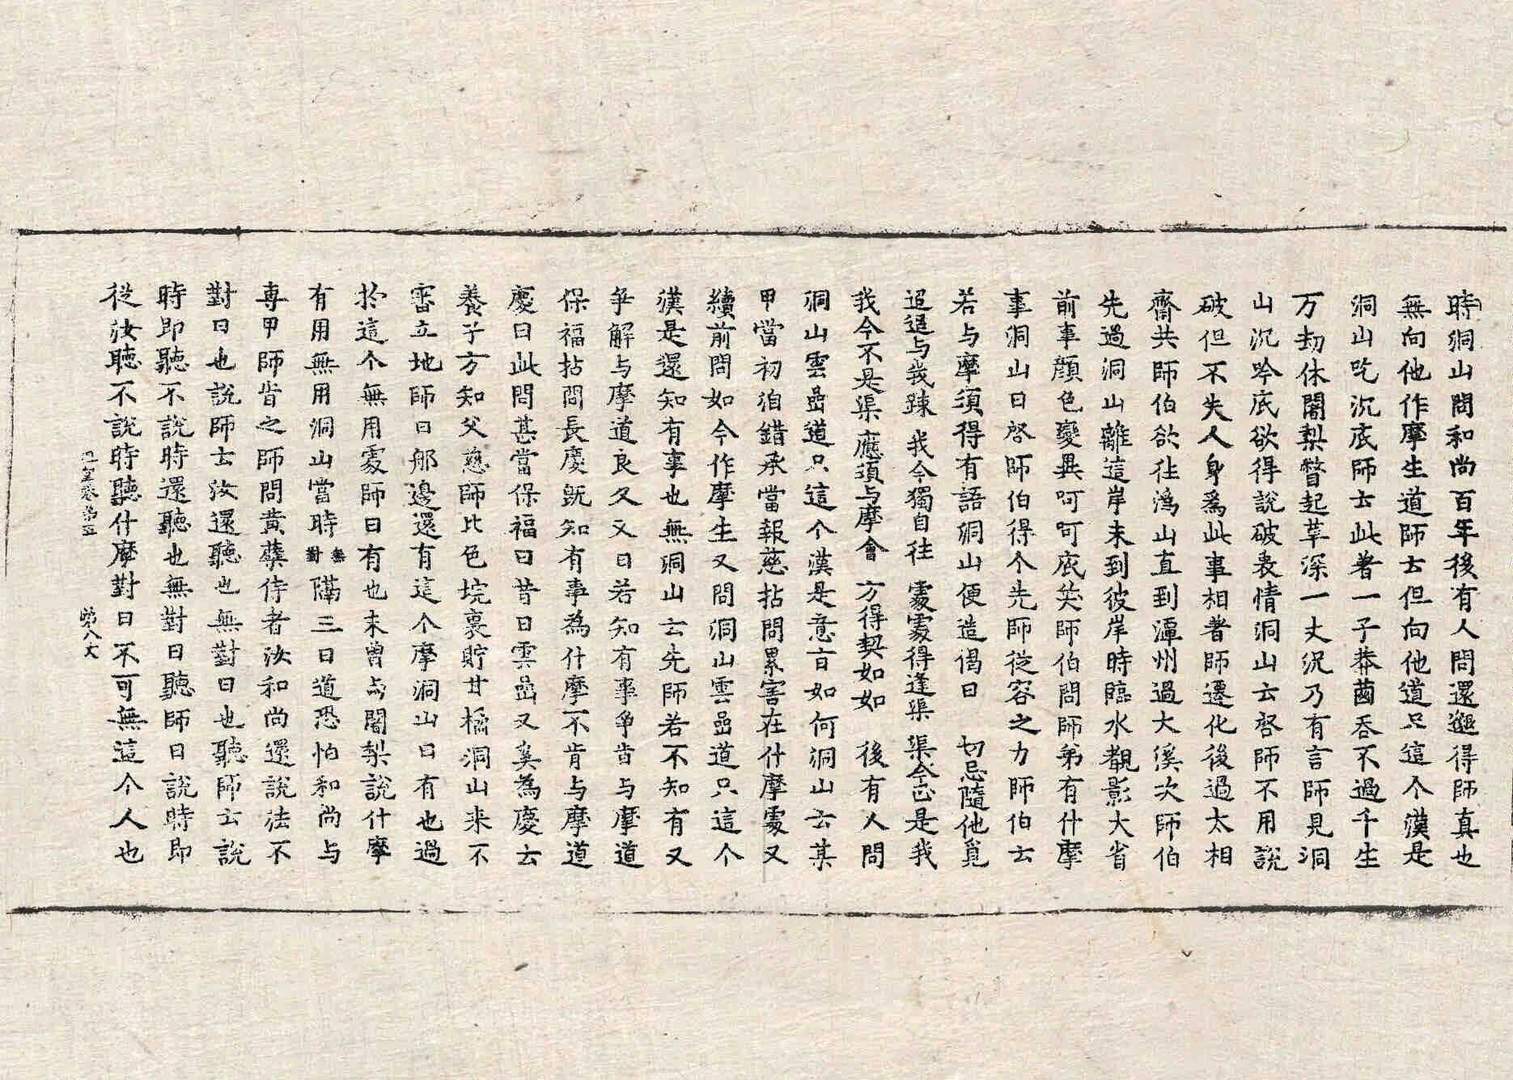 時洞山問和尚百年後有人問還邈得師真也
無向他作摩生道師云但向他道只這个漢是
洞山吃沉底師云此著一子莽鹵吞不過千生
万劫休闍梨瞥起草深一丈況乃有言師見洞
山沉吟底欲得說破衷情洞山云啓師不用說
破但不失人身為此事相著師遷化後過太相
齋共師伯欲往溈山直到潭州過大溪次師伯
先過洞山離這岸未到彼岸時臨水覩影大省
前事顔色變異呵呵底笑師伯問師弟有什摩
事洞山曰啓師伯得个先師從容之力師伯云
若与摩須得有語洞山便造偈曰 切忌隨他覓
迢迢与我踈 我今獨自往 處處得逢渠 渠今正是我
我今不是渠 應須与摩會 方得契如如 後有人問
洞山雲嵒道只這个漢是意旨如何洞山云某
甲當初洎錯承當報慈拈問累害在什摩處又
續前問如今作摩生又問洞山雲嵒道只這个
漢是還知有事也無洞山云先師若不知有又
爭解与摩道良久又曰若知有事爭肯与摩道
保福拈問長慶既知有事為什摩不肯与摩道
慶曰此問甚當保福曰昔日雲嵒又奚為慶云
養子方知父慈師比色垸裏貯甘橘洞山來不
審立地師曰那邊還有這个摩洞山曰有也過
於這个無用處師曰有也未曾与闍梨說什摩
有用無用洞山當時無對隔三日道恐怕和尚与
專甲師肯之師問黄蘗侍者汝和尚還說法不
對曰也說師云汝還聽也無對曰也聽師云說
時即聽不說時還聽也無對曰聽師曰說時即
從汝聽不說時聽什摩對曰不可無這个人也
祖堂卷第五 第八丈